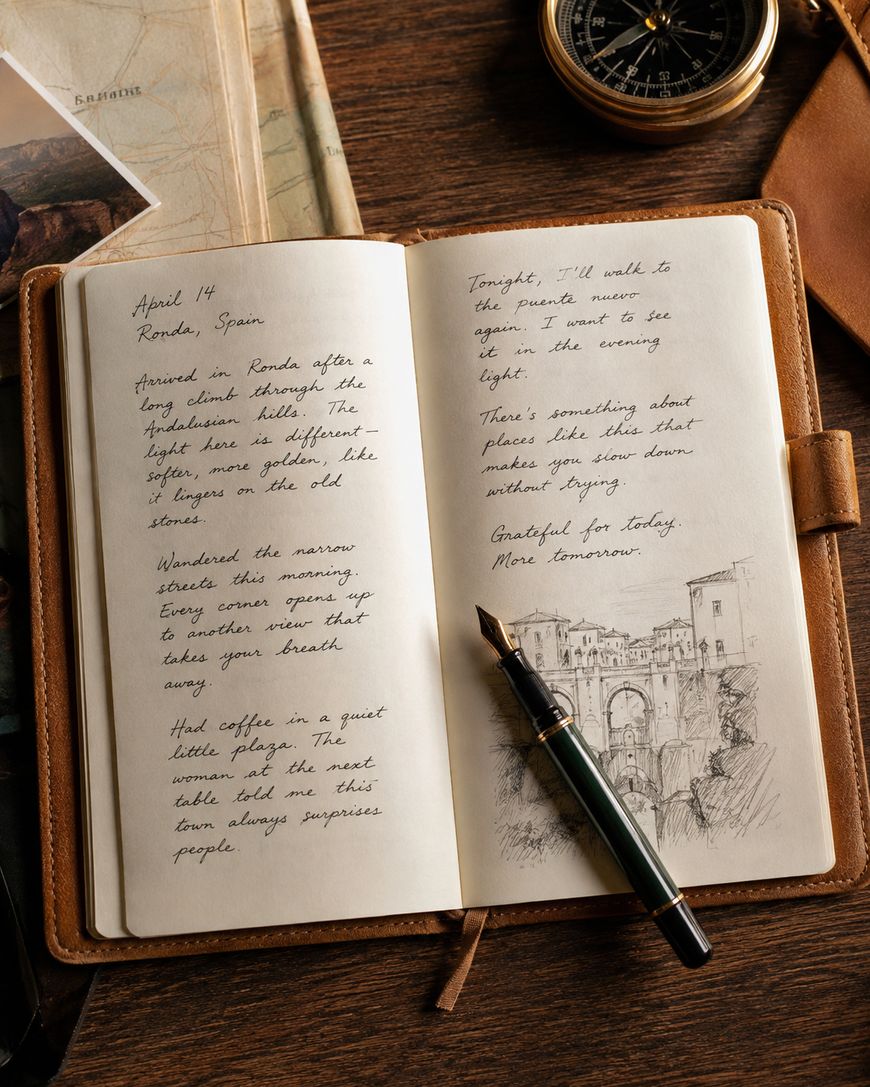 April 14
Ronda, Spain
Arrived in Ronda after a
long climb through the
Andalusian hills. The
light here is different—
softer, more golden, like
it lingers on the old
stones.
Wandered the narrow
streets this morning.
Every corner opens up
to another view that
takes your breath
away.
Had coffee in a quiet
little plaza. The
woman at the next
table told me this
town always surprises
people.
Tonight, I'll walk to
the puente nuevo
again. I want to see
it in the evening
light.
There's something about
places like this that
makes you slow down
without trying.
Grateful for today.
More tomorrow.